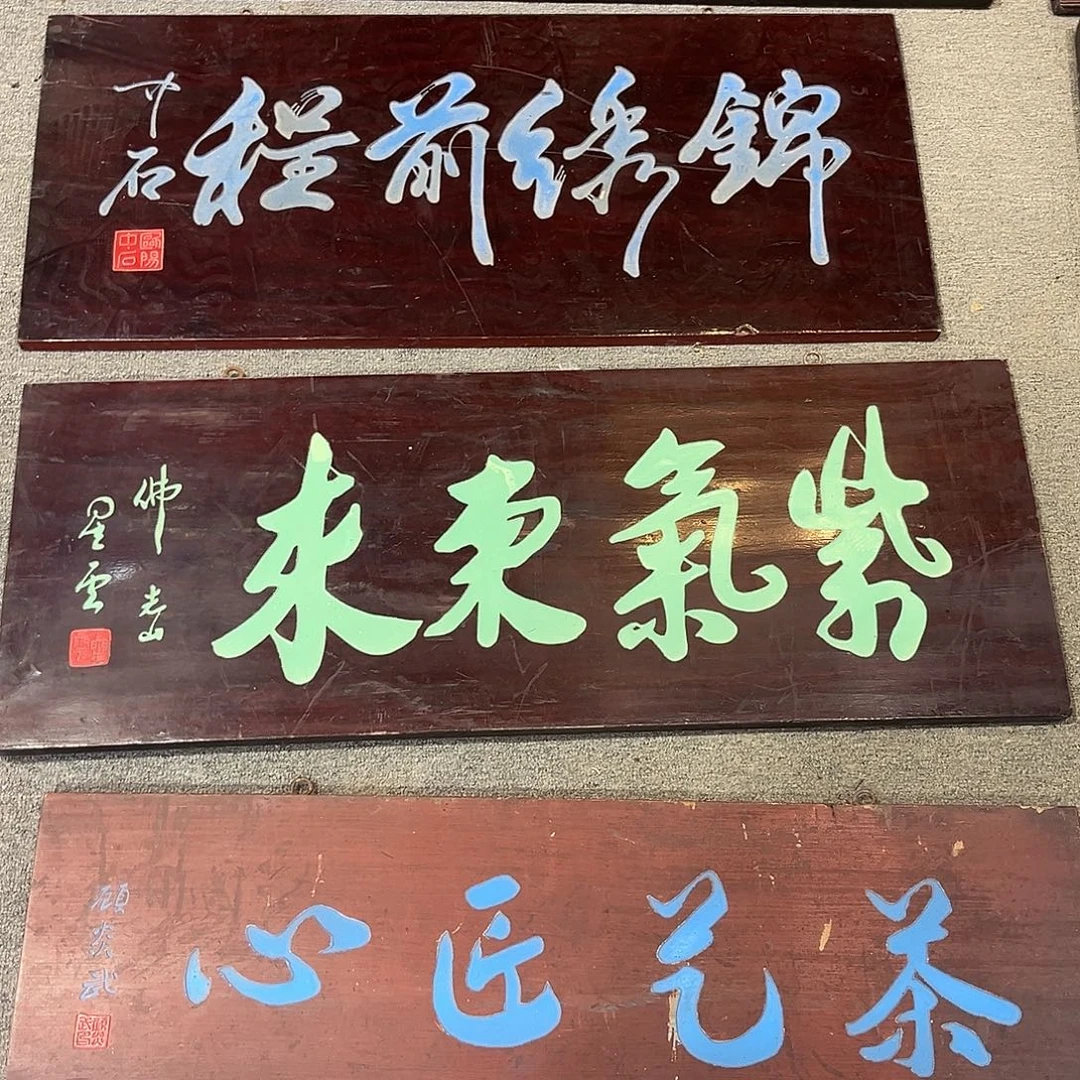 錦綉前程
中石
歐陽中石
紫氣東來
佛光山
星雲
茶艺匠心
顧炎武